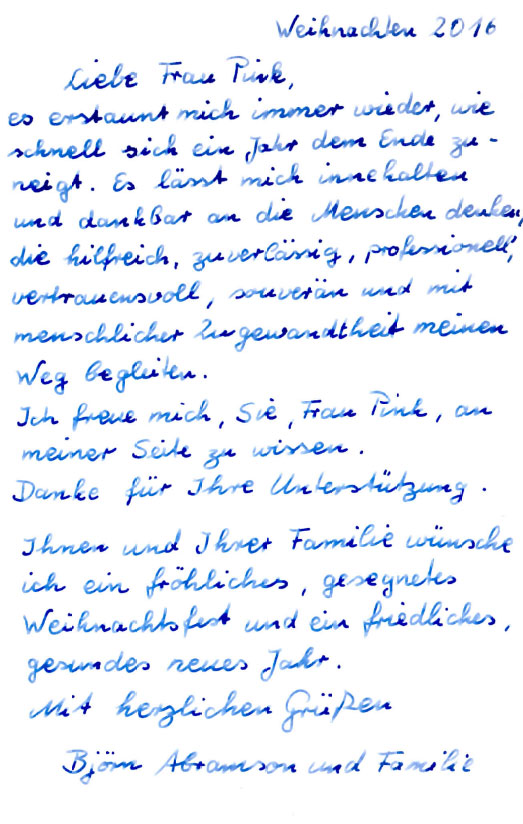 Weihnachten 2016
Liebe Frau Pink,
es erstaunt mich immer wieder, wie
schnell sich ein Jahr dem Ende zu-
neigt. Es lässt mich innehalten
und dankbar an die Menschen denken,
die hilfreich, zuverlässig, professionell,
vertrauensvoll, souverän und mit
menschlicher Zugewandtheit meinen
Weg begleiten.
Ich freue mich, Sie, Frau Pink, an
meiner Seite zu wissen.
Danke für Ihre Unterstützung.
Ihnen und Ihrer Familie wünsche
ich ein fröhliches, gesegnetes
Weihnachtsfest und ein friedliches,
gesundes neues Jahr.
Mit herzlichen Grüßen
Björn Abramson und Familie